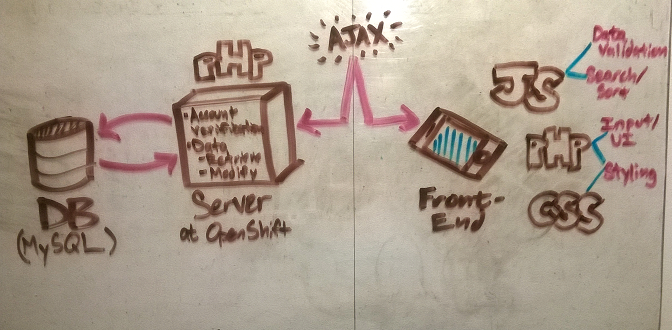 AJAX
PHP
• Account
verification
• Data
- Retrieve
- Modify
Server
at OpenShift
DB
(MySQL)
Front-
End
JS
Data
Validation
Search/
Sort
PHP
Input/
UI
Styling
CSS